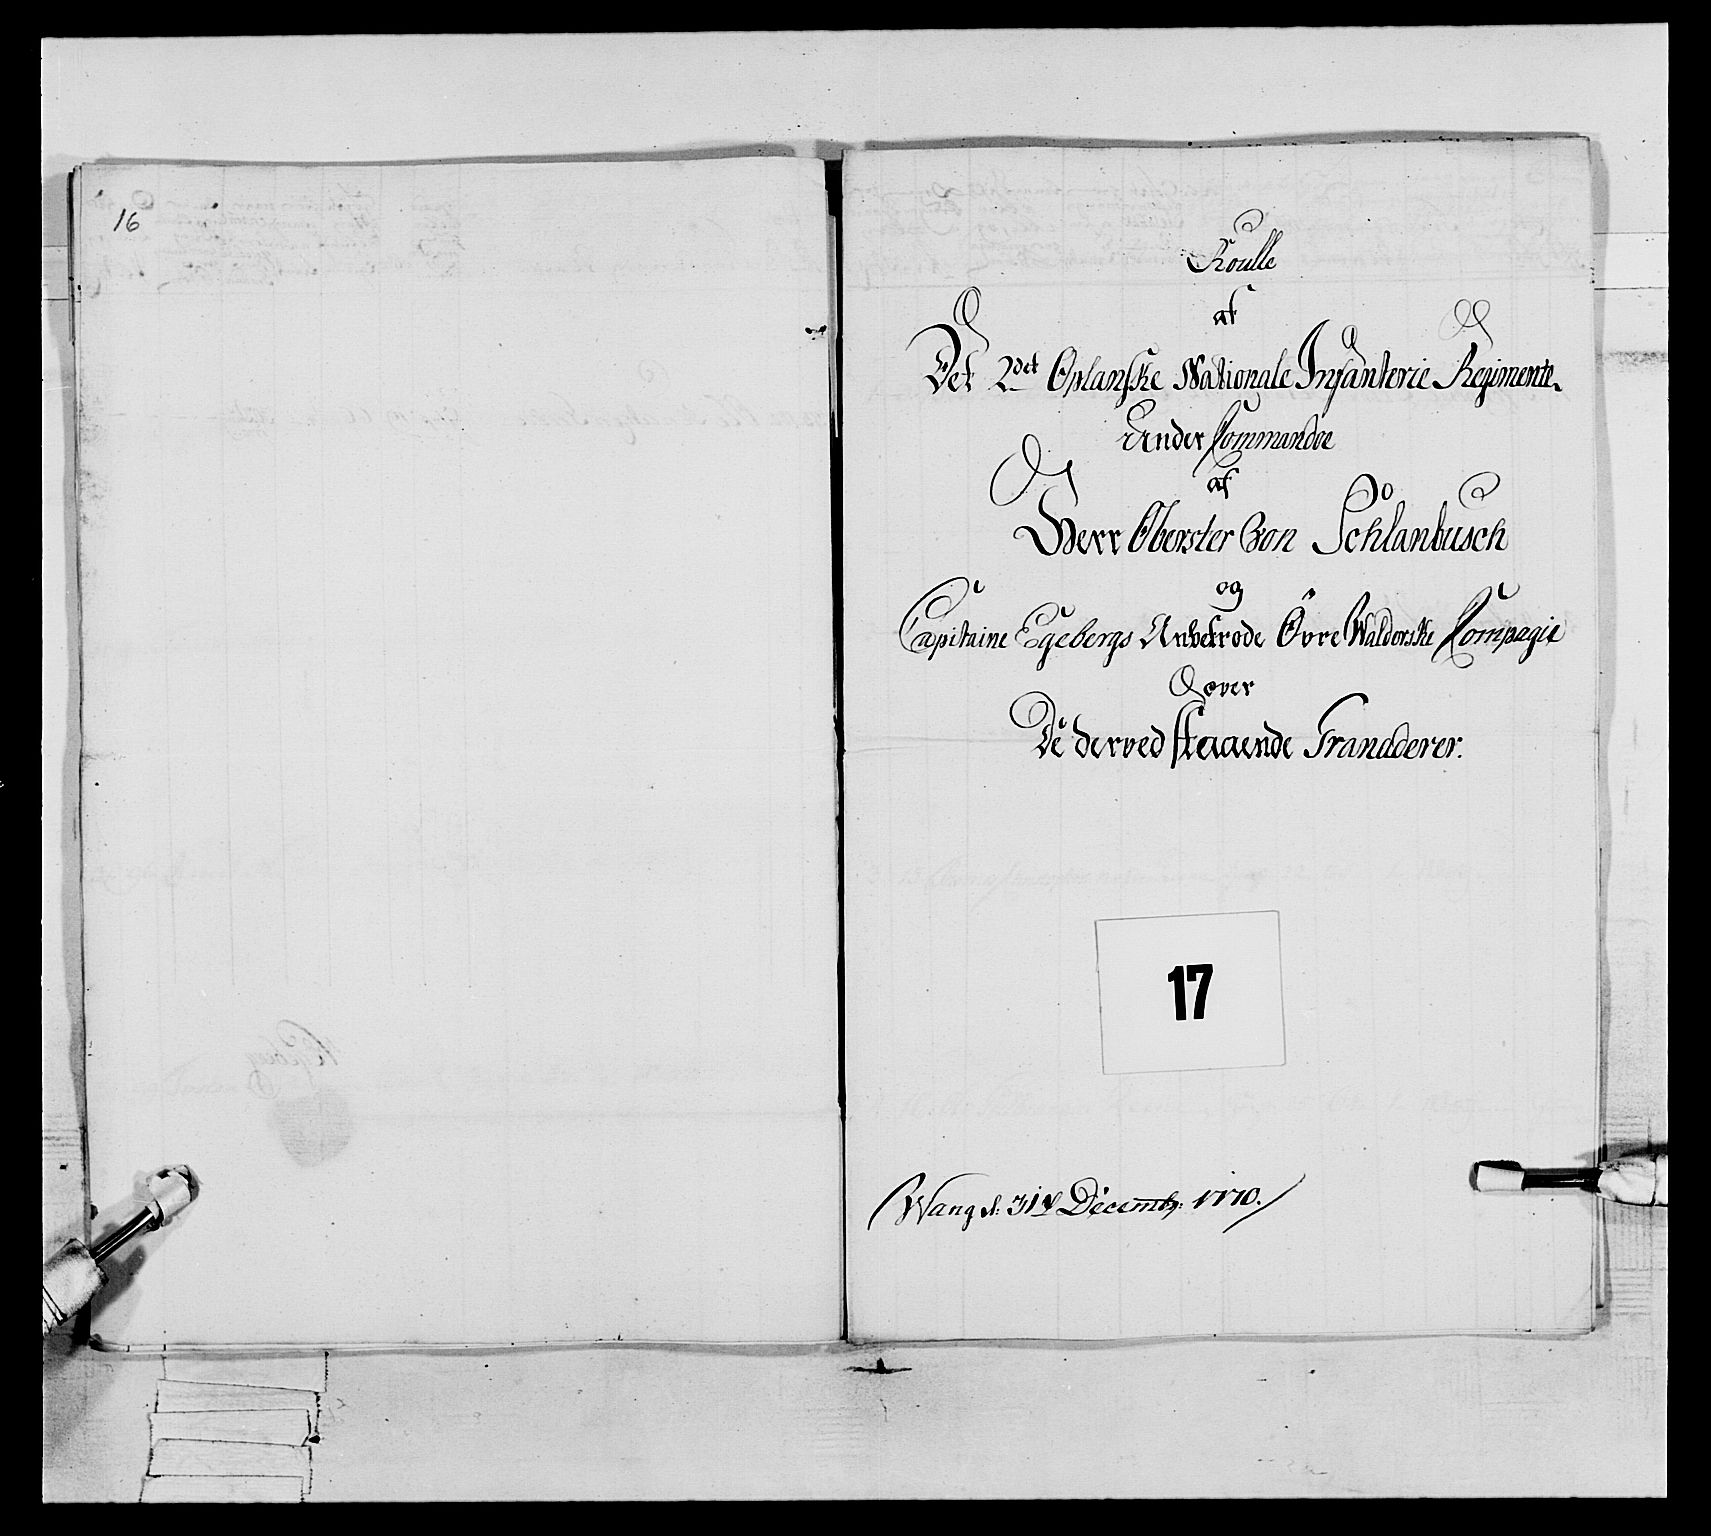 16
Roulle
af
Det 2det Oplanske Nationale Infanterie Regimente.
Under Commando
af
Herr Oberster Von Schlanbusch
og
Capitaine Egebergs Anbetrode Övre Walderske Compagie
over
De derved staaende Granaderer.
17
Wang d: 31te Decembr: 1770.